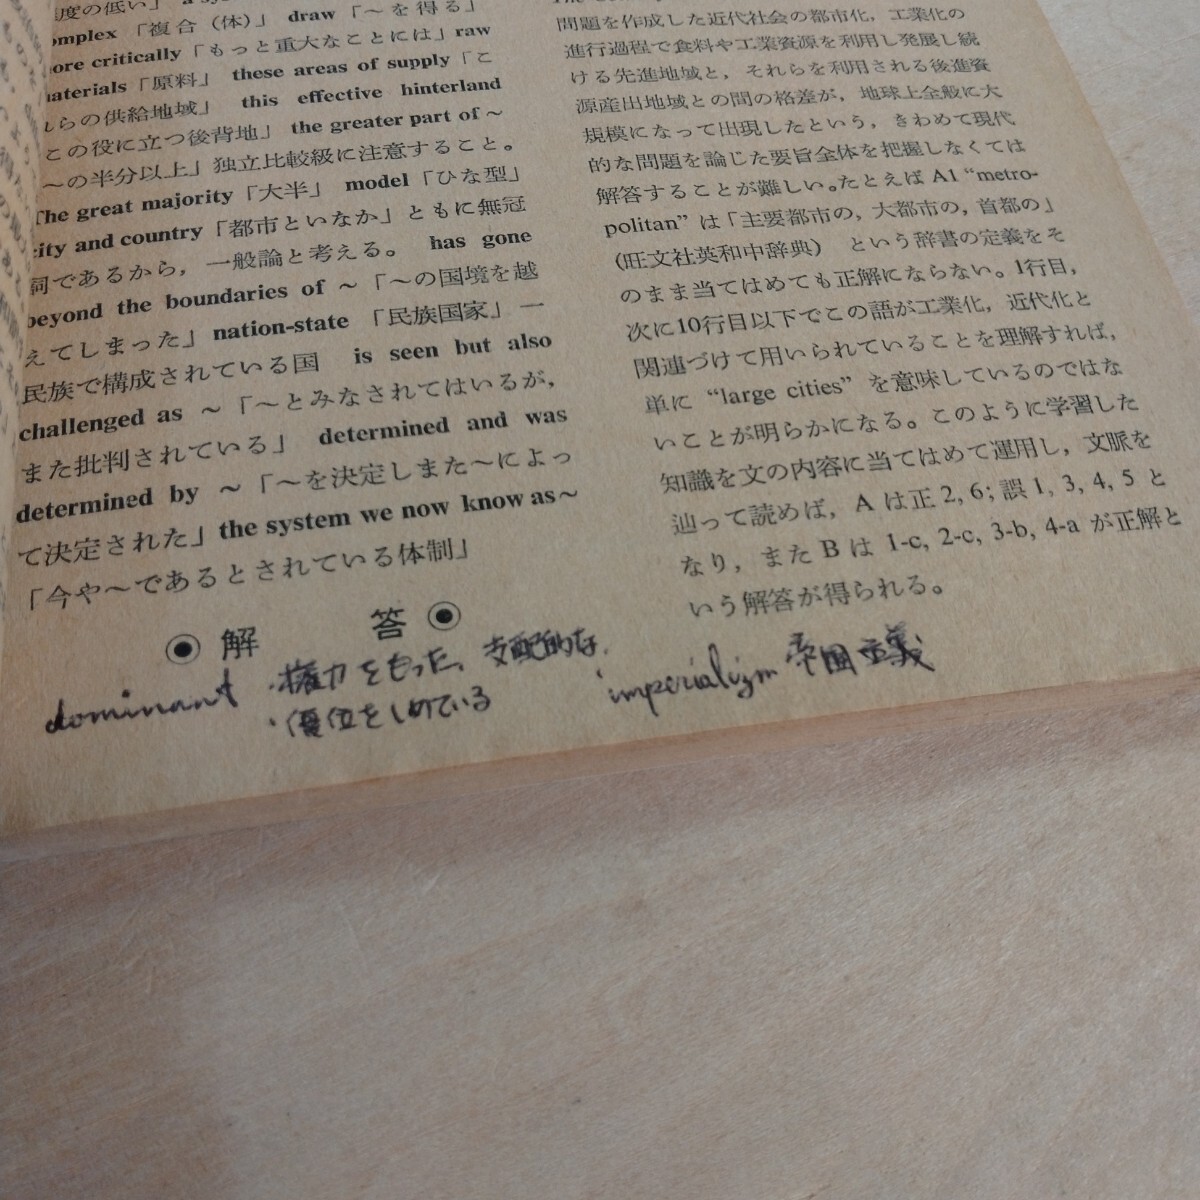 度の低い」
omplex 「複合（体）」 draw 「～を得る」
ore critically「もっと重大なことには」raw
aterials「原料」 these areas of supply「こ
らの供給地域」 this effective hinterland
この役に立つ後背地」 the greater part of～
～の半分以上」独立比較級に注意すること。
The great majority「大半」 model「ひな型」
city and country「都市といなか」ともに無冠
詞であるから，一般論と考える。 has gone
beyond the boundaries of ～「～の国境を越
えてしまった」nation-state 「民族国家」一
民族で構成されている国 is seen but also
challenged as ～「～とみなされてはいるが，
また批判されている」 determined and was
determined by ～「～を決定しまた～によっ
て決定された」the system we now know as～
「今や～であるとされている体制」
解 答
問題を作成した近代社会の都市化，工業化の
進行過程で食料や工業資源を利用し発展し続
ける先進地域と，それらを利用される後進資
源産出地域との間の格差が，地球上全般に大
規模になって出現したという，きわめて現代
的な問題を論じた要旨全体を把握しなくては
解答することが難しい。たとえば A1 “metro-
politan” は「主要都市の，大都市の，首都の」
（旺文社英和中辞典） という辞書の定義をそ
のまま当てはめても正解にならない。1行目，
次に10行目以下でこの語が工業化，近代化と
関連づけて用いられていることを理解すれば，
単に “large cities” を意味しているのではな
いことが明らかになる。このように学習した
知識を文の内容に当てはめて運用し，文脈を
辿って読めば，A は正 2, 6; 誤 1, 3, 4, 5 と
なり，また B は 1-c, 2-c, 3-b, 4-a が正解と
いう解答が得られる。
dominant ・権力をもった、支配的な、
・優位をしめている
imperializm 帝国主義